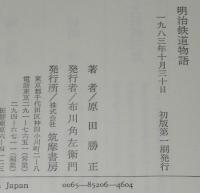 明治鉄道物語
一九八三年十月三十日　初版第一刷発行
著者／原田勝正
発行者／布川角左衛門
発行所／株式会社 筑摩書房
東京都千代田区神田小川町二ー八
電話東京二九一ー七六五一（営業）
二九四ー六七一一（編集）
Japan 0065—85206—4604